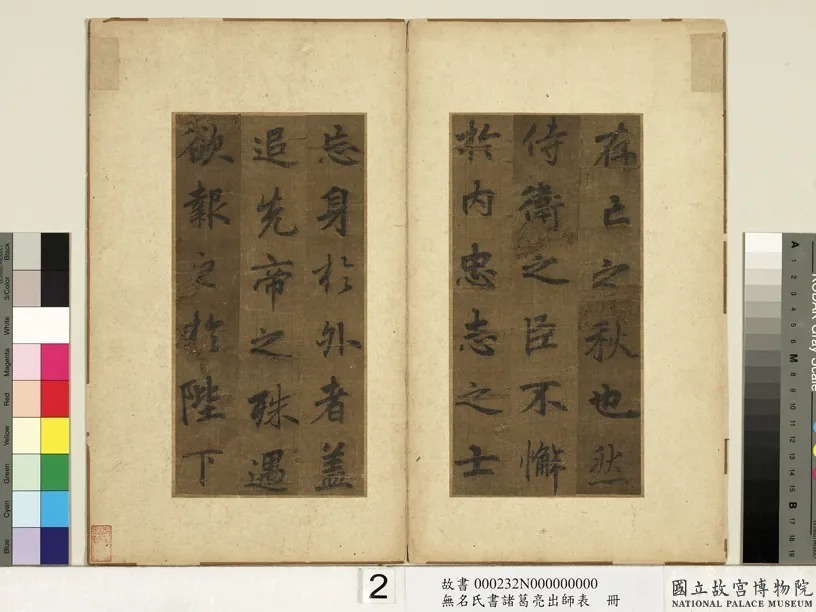 存亡之秋也然
侍衛之臣不懈
於內忠志之士
忘身於外者蓋
追先帝之殊遇
欲報之於陛下
2
故書 000232N000000000
無名氏書諸葛亮出師表 冊
國立故宮博物院
NATIONAL PALACE MUSEUM
Black
3/Color
White
Magenta
Red
Yellow
Green
Cyan
Blue
KODAK Gray Scale
A 1 2 3 4 5 6 M 8 9 10 11 12 13 14 15 B 17 18 19